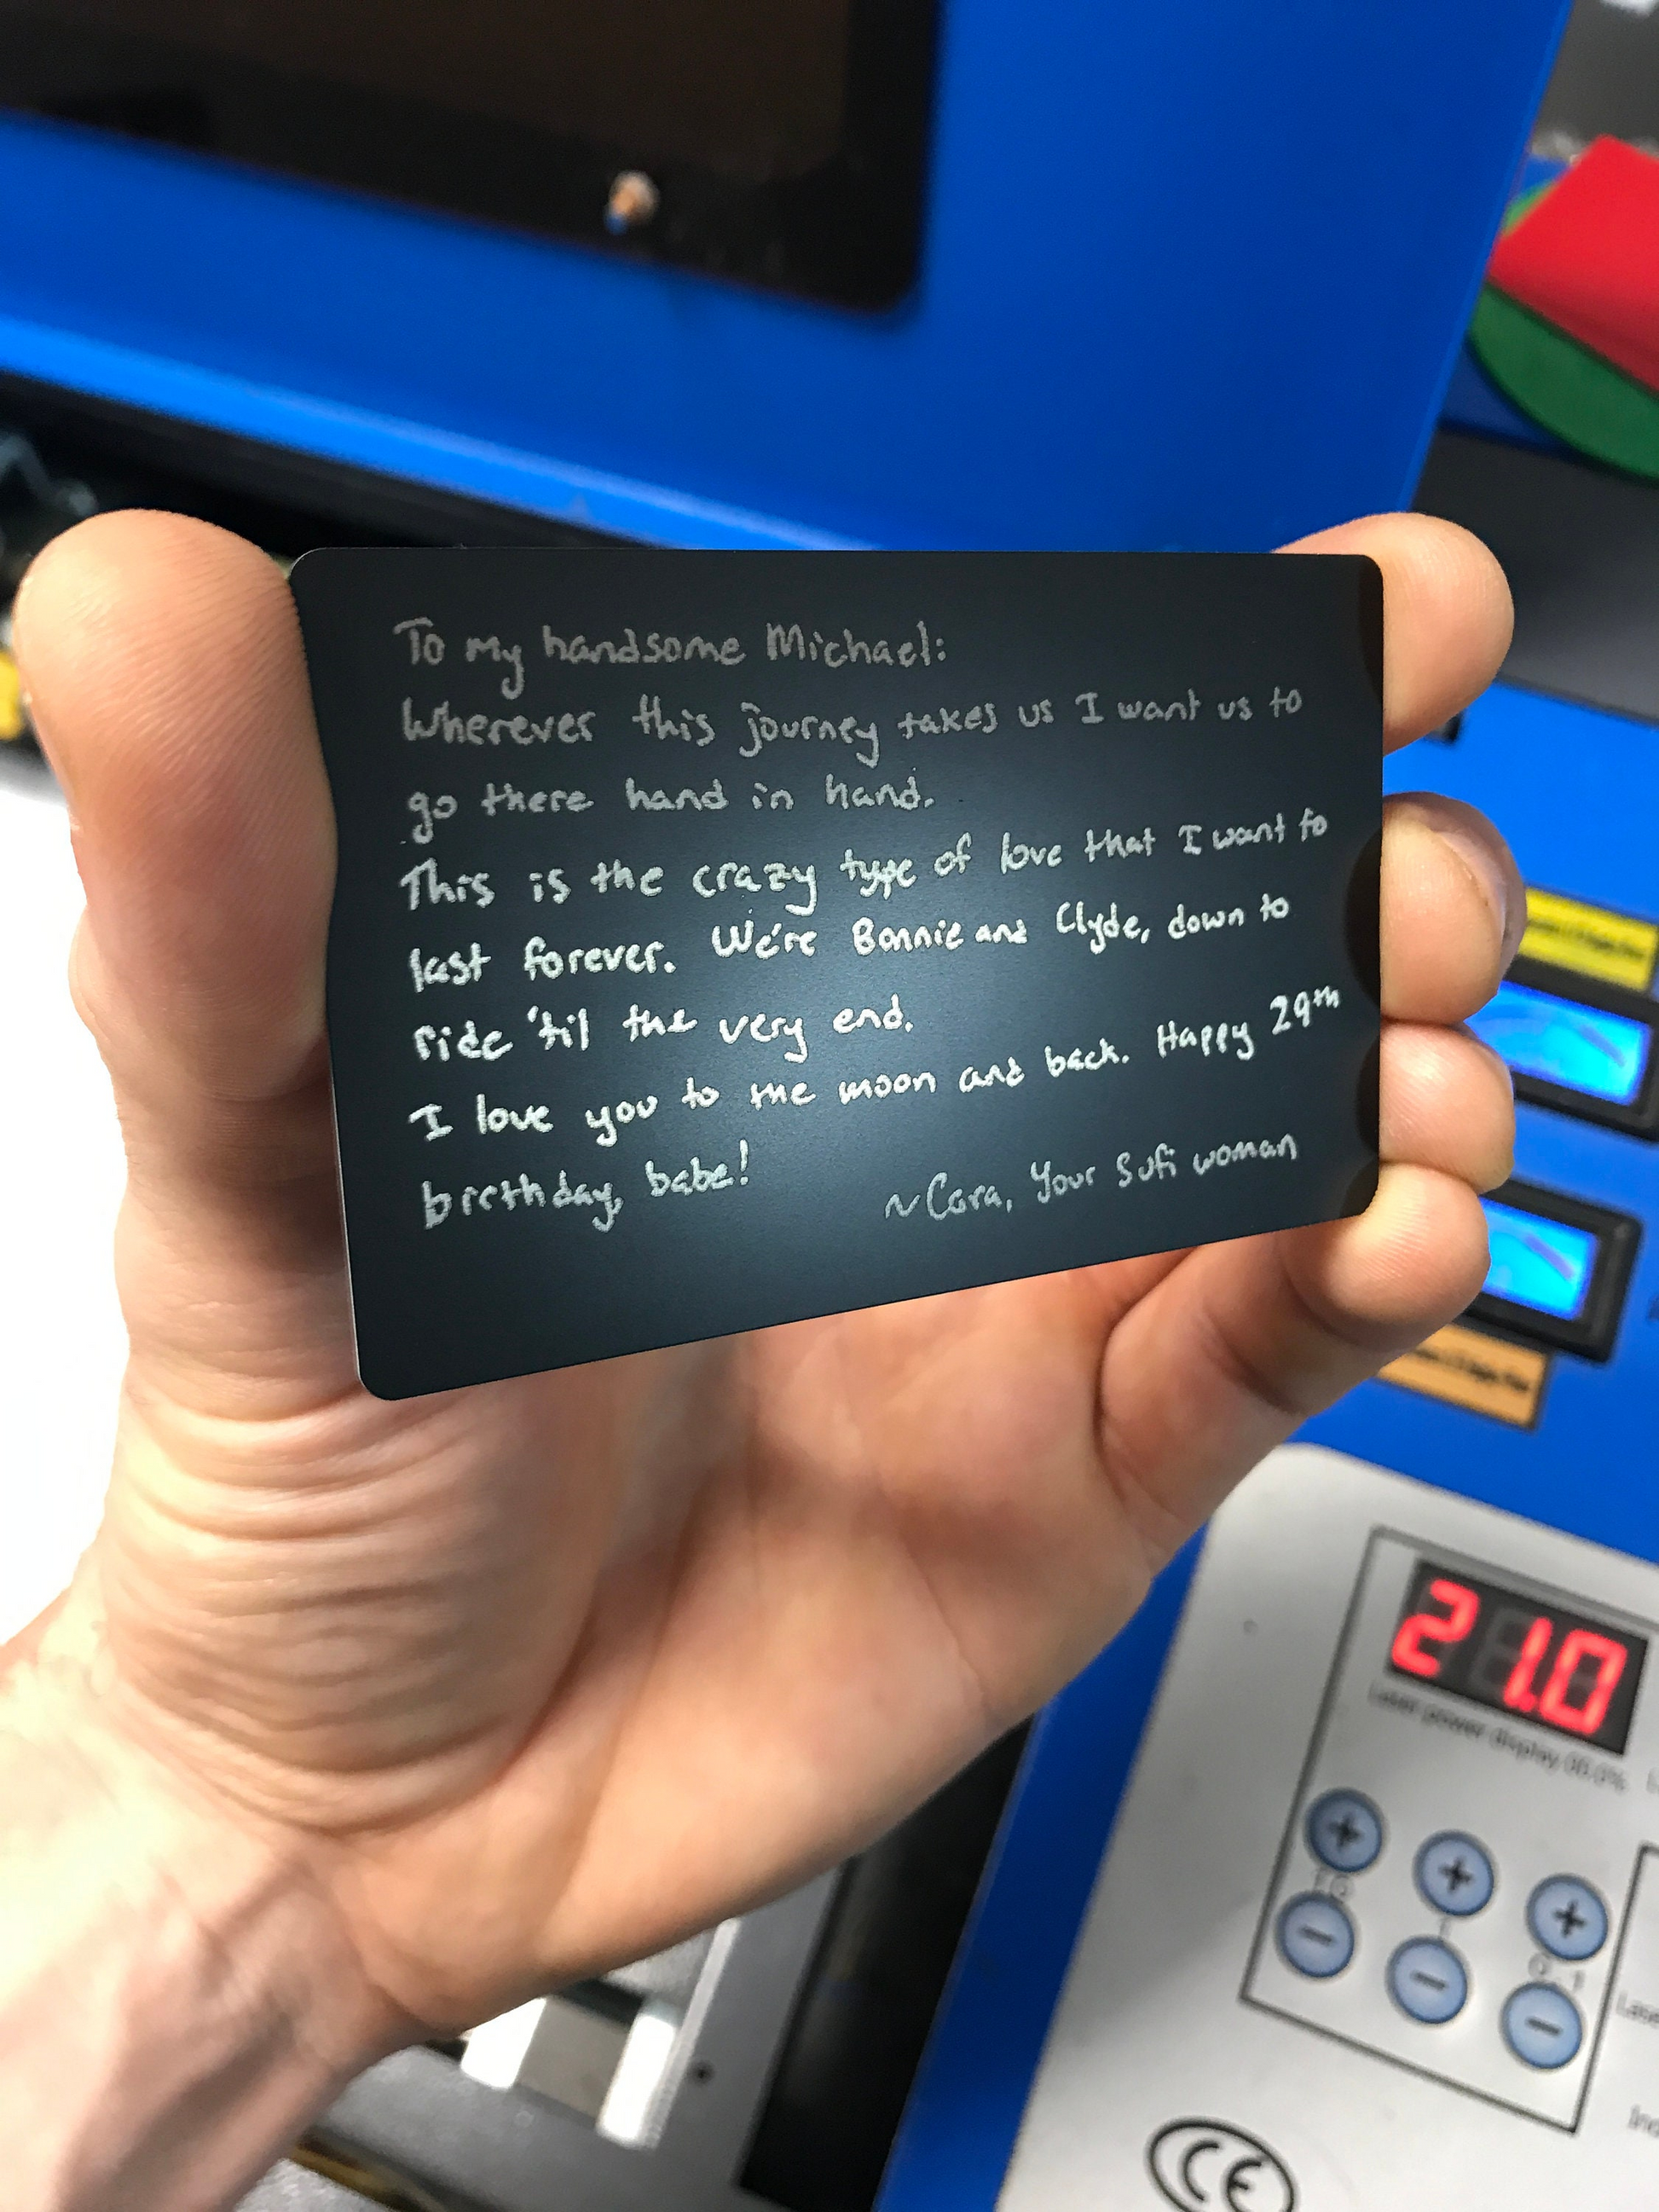 To my handsome Michael:
Wherever this journey takes us I want us to
go there hand in hand.
This is the crazy type of love that I want to
last forever. We're Bonnie and Clyde, down to
ride 'til the very end.
I love you to the moon and back. Happy 29th
birthday, babe!
~Cara, Your Sufi woman
21.0
Laser power display 00.0%
10
1
0.1
CE